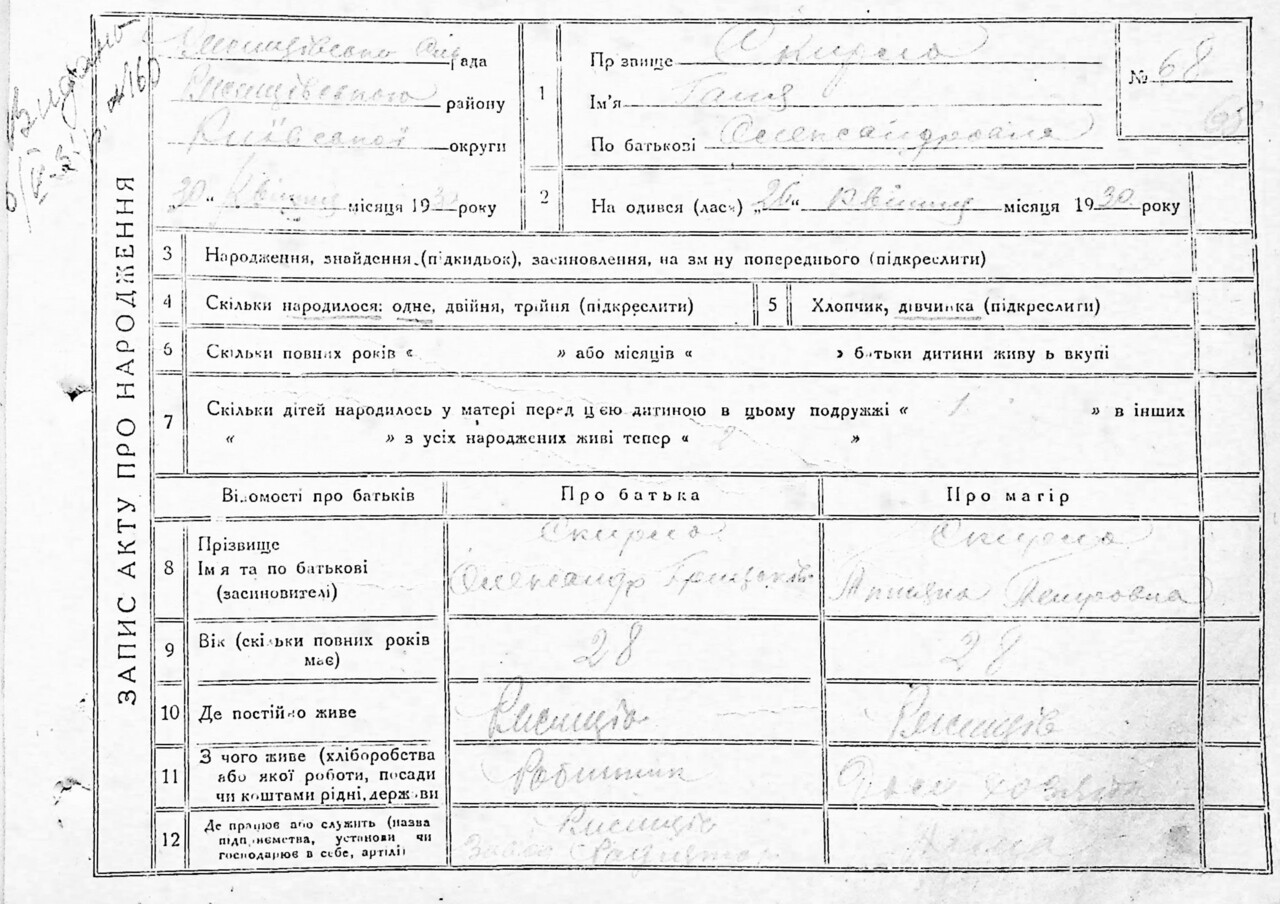 Видано
№ 160
рада
району
Київської округи
30 " Квітня місяця 1930 року
1
Пр звище Скирта
Ім'я Галя
По батькові Олександровна
№ 68
68
2
На одився (лась) „26" Квітня місяця 1930 року
ЗАПИС АКТУ ПРО НАРОДЖЕННЯ
3 Народження, знайдення (підкидьок), засиновлення, на зм ну попереднього (підкреслити)
4 Скільки народилося: одне, двійня, трійня (підкреслити)
5 Хлопчик, дівчинка (підкреслити)
6 Скільки повних років « » або місяців « » батьки дитини живу ь вкупі
7 Скільки дітей народилось у матері перед цією дитиною в цьому подружжі « 1 » в інших
« » з усіх народжених живі тепер « 2 »
Відомості про батьків Про батька Про матір
8 Прізвище
Імя та по батькові
(засиновителі)
Олександр
Петровна
9 Вік (скільки повних років
має)
28
28
10 Де постійно живе
Ржищів
Ржищів
11 З чого живе (хліборобства
або якої роботи, посади
чи коштами рідні, держави
Робітник
12 Де працює або служить (назва
підприємства, установи чи
господарює в себе, артілі)
Ржищів